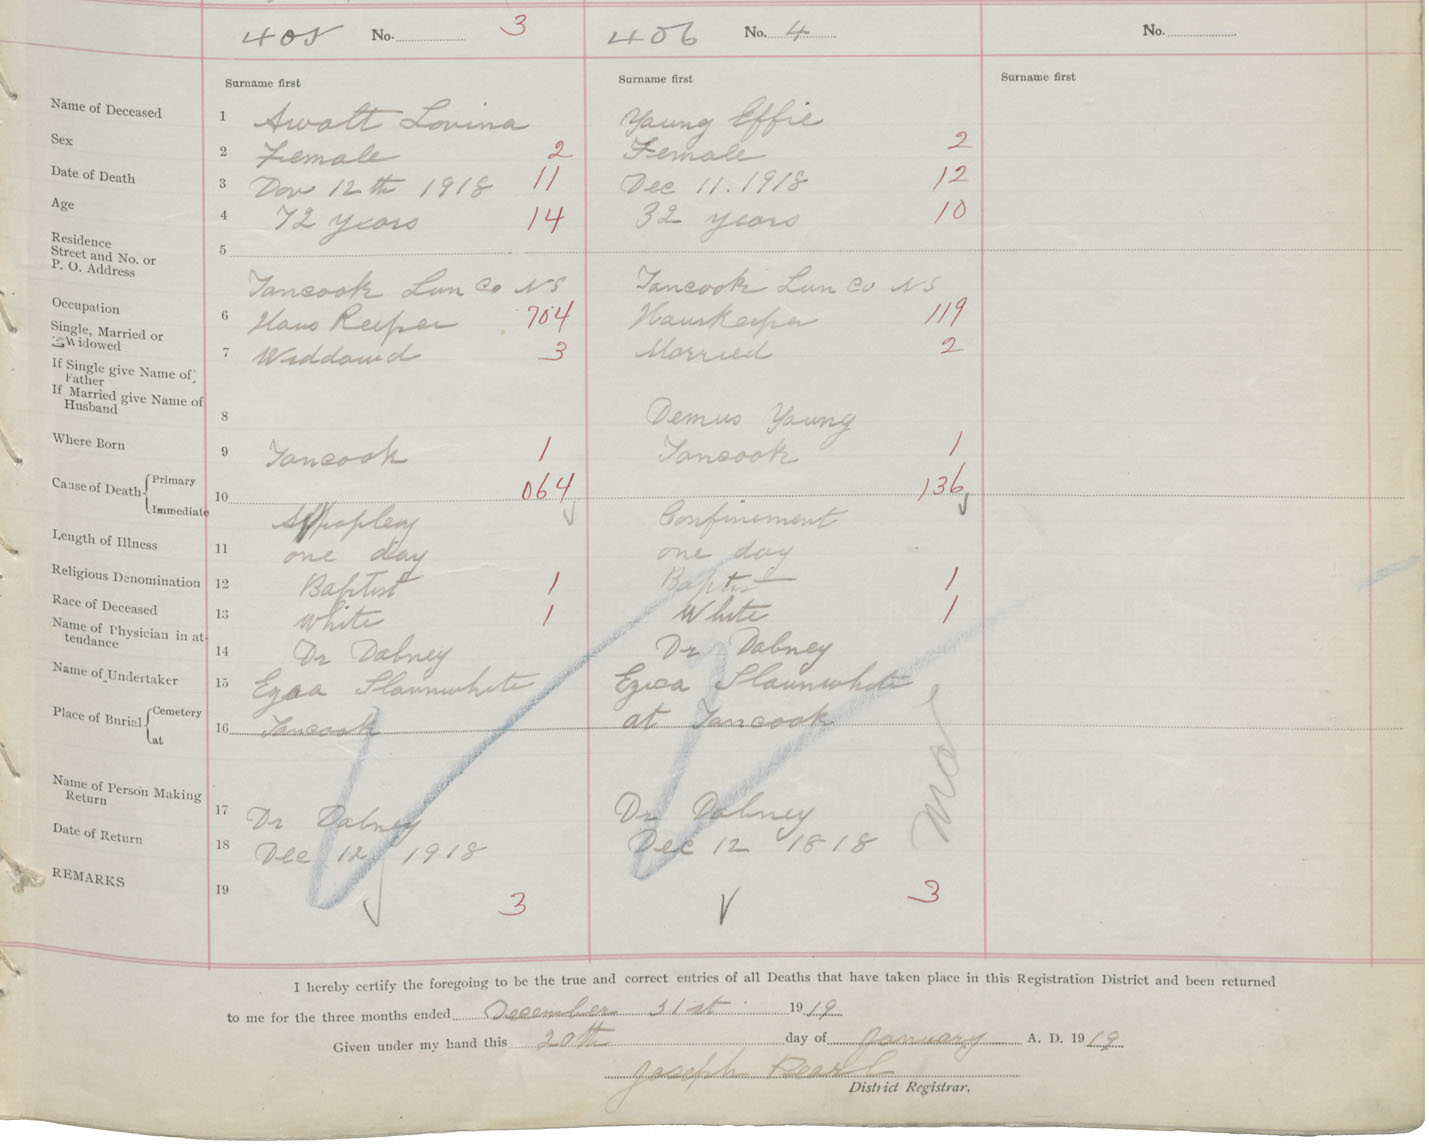 405 No. 3 406 No. 4 No.
Surname first Surname first Surname first
Name of Deceased 1 Awalt Lovina Young Effie
Sex 2 Female 2 Female 2
Date of Death 3 Nov 12th 1918 11 Dec 11. 1918 12
Age 4 72 years 14 32 years 10
Residence
Street and No. or 5
P. O. Address
Tancook Lun Co NS Tancook Lun Co NS
Occupation 6 Haus Keeper 704 Hauskeeper 119
Single, Married or
Widowed 7 Widdowd 3 Married 2
If Single give Name of
Father
If Married give Name of
Husband 8 Demus Young
Where Born 9 Tancook 1 Tancook 1
Cause of Death Primary 10 064 136
Immediate Appoplexy Confinement
Length of Illness 11 one day one day
Religious Denomination 12 Baptist 1 Baptis 1
Race of Deceased 13 White 1 White 1
Name of Physician in at-
tendance 14 Dr Dabney Dr Dabney
Name of Undertaker 15 Ezra Slaunwhite Ezra Slaunwhite
Place of Burial Cemetery 16 Tancook at Tancook
at
Name of Person Making
Return 17 Dr Dabney Dr Dabney
Date of Return 18 Dec 12 1918 Dec 12 1818
REMARKS 19 3 3
I hereby certify the foregoing to be the true and correct entries of all Deaths that have taken place in this Registration District and been returned
to me for the three months ended December 31st 1919
Given under my hand this 20th day of January A. D. 1919
Joseph Pearl
District Registrar.